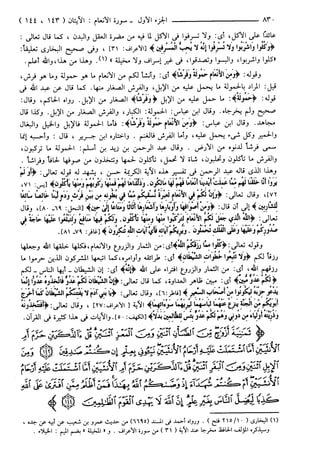 ٨٣٠ الجزء الأول ـ سورة الأنعام : الآيتان (١٤٣ ، ١٤٤)
عائداً على الأكل، أي: ولا تسرفوا في الأكل لما فيه من مضرة العقل والبدن ، كما قال تعالى :
﴿وَكُلُوا وَاشْرَبُوا وَلَا تُسْرِفُوا إِنَّهُ لَا يُحِبُّ الْمُسْرِفِينَ﴾ [الأعراف: ٣١] ، وفي صحيح البخاري تعليقاً:
«كلوا واشربوا، والبسوا وتصدقوا، في غير إسراف ولا مخيلة» (١) . وهذا من هذا، والله أعلم.
وقوله: ﴿وَمِنَ الْأَنْعَامِ حَمُولَةً وَفَرْشًا﴾ أي: وأنشأ لكم من الأنعام ما هو حمولة وما هو فرش،
قيل: المراد بالحمولة ما يحمل عليه من الإبل، والفرش الصغار منها. كما قال عبد الله في
قوله: ﴿حَمُولَةً﴾: ما حمل عليه من الإبل ﴿وَفَرْشًا﴾: الصغار من الإبل. رواه الحاكم، وقال:
صحيح ولم يخرجاه. وقال ابن عباس: الحمولة: الكبار، والفرش الصغار من الإبل. وكذا قال
مجاهد. وقال ابن عباس: ﴿وَمِنَ الْأَنْعَامِ حَمُولَةً وَفَرْشًا﴾: فأما الحمولة فالإبل والخيل والبغال
والحمير وكل شيء يحمل عليه، وأما الفرش فالغنم . واختاره ابن جرير ، قال : وأحسبه إنما
سمي فرشاً لدنوه من الأرض . وقال عبد الرحمن بن زيد بن أسلم: الحمولة ما تركبون،
والفرش ما تأكلون وتحلبون، شاة لا تحمل، تأكلون لحمها وتتخذون من صوفها لحافاً وفراشاً .
وهذا الذي قاله عبد الرحمن في تفسير هذه الآية الكريمة حسن ، يشهد له قوله تعالى: ﴿أَوَلَمْ
يَرَوْا أَنَّا خَلَقْنَا لَهُم مِّمَّا عَمِلَتْ أَيْدِينَا أَنْعَامًا فَهُمْ لَهَا مَالِكُونَ . وَذَلَّلْنَاهَا لَهُمْ فَمِنْهَا رَكُوبُهُمْ وَمِنْهَا يَأْكُلُونَ﴾ [يس: ٧١،
٧٢]، وقال تعالى: ﴿وَإِنَّ لَكُمْ فِي الْأَنْعَامِ لَعِبْرَةً نُّسْقِيكُم مِّمَّا فِي بُطُونِهِ مِن بَيْنِ فَرْثٍ وَدَمٍ لَّبَنًا خَالِصًا سَائِغًا
لِّلشَّارِبِينَ﴾ إلى أن قال: ﴿وَمِنْ أَصْوَافِهَا وَأَوْبَارِهَا وَأَشْعَارِهَا أَثَاثًا وَمَتَاعًا إِلَىٰ حِينٍ﴾ [النحل: ٦٦ـ ٨٠]، وقال
تعالى: ﴿اللَّهُ الَّذِي جَعَلَ لَكُمُ الْأَنْعَامَ لِتَرْكَبُوا مِنْهَا وَمِنْهَا تَأْكُلُونَ . وَلَكُمْ فِيهَا مَنَافِعُ وَلِتَبْلُغُوا عَلَيْهَا حَاجَةً فِي
صُدُورِكُمْ وَعَلَيْهَا وَعَلَى الْفُلْكِ تُحْمَلُونَ . وَيُرِيكُمْ آيَاتِهِ فَأَيَّ آيَاتِ اللَّهِ تُنكِرُونَ﴾ [غافر: ٧٩ـ ٨١].
وقوله تعالى: ﴿كُلُوا مِمَّا رَزَقَكُمُ اللَّهُ﴾ أي: من الثمار والزروع والأنعام، فكلها خلقها الله وجعلها
رزقاً لكم ﴿وَلَا تَتَّبِعُوا خُطُوَاتِ الشَّيْطَانِ﴾ أي: طرائقه وأوامره، كما اتبعها المشركون الذين حرموا ما
رزقهم الله، أي: من الثمار والزروع افتراء على الله ﴿إِنَّهُ﴾ أي: إن الشيطان ـ أيها الناس ـ لكم
﴿لَكُمْ عَدُوٌّ مُّبِينٌ﴾ أي: مبين ظاهر العداوة، كما قال تعالى: ﴿إِنَّ الشَّيْطَانَ لَكُمْ عَدُوٌّ فَاتَّخِذُوهُ عَدُوًّا إِنَّمَا
يَدْعُو حِزْبَهُ لِيَكُونُوا مِنْ أَصْحَابِ السَّعِيرِ﴾ [فاطر: ٦]، وقال تعالى: ﴿يَا بَنِي آدَمَ لَا يَفْتِنَنَّكُمُ الشَّيْطَانُ كَمَا أَخْرَجَ
أَبَوَيْكُم مِّنَ الْجَنَّةِ يَنزِعُ عَنْهُمَا لِبَاسَهُمَا لِيُرِيَهُمَا سَوْآتِهِمَا﴾ الآية [الأعراف: ٢٧]، وقال تعالى: ﴿أَفَتَتَّخِذُونَهُ
وَذُرِّيَّتَهُ أَوْلِيَاءَ مِن دُونِي وَهُمْ لَكُمْ عَدُوٌّ بِئْسَ لِلظَّالِمِينَ بَدَلًا﴾ [الكهف: ٥٠]. والآيات في هذا كثيرة في القرآن.
ثَمَانِيَةَ أَزْوَاجٍ مِّنَ الضَّأْنِ اثْنَيْنِ وَمِنَ الْمَعْزِ اثْنَيْنِ قُلْ آلذَّكَرَيْنِ حَرَّمَ أَمِ
الْأُنثَيَيْنِ أَمَّا اشْتَمَلَتْ عَلَيْهِ أَرْحَامُ الْأُنثَيَيْنِ نَبِّئُونِي بِعِلْمٍ إِن كُنتُمْ صَادِقِينَ
وَمِنَ الْإِبِلِ اثْنَيْنِ وَمِنَ الْبَقَرِ اثْنَيْنِ قُلْ آلذَّكَرَيْنِ حَرَّمَ أَمِ
الْأُنثَيَيْنِ أَمَّا اشْتَمَلَتْ عَلَيْهِ أَرْحَامُ الْأُنثَيَيْنِ أَمْ كُنتُمْ شُهَدَاءَ إِذْ وَصَّاكُمُ اللَّهُ بِهَٰذَا فَمَنْ أَظْلَمُ مِمَّنِ
افْتَرَىٰ عَلَى اللَّهِ كَذِبًا لِّيُضِلَّ النَّاسَ بِغَيْرِ عِلْمٍ إِنَّ اللَّهَ لَا يَهْدِي الْقَوْمَ الظَّالِمِينَ
(١) البخاري (١٠/ ٢١٥ فتح) . ورواه أحمد في المسند (٦٦٩٥) من حديث عمرو بن شعيب عن أبيه عن جده ،
وسيذكره المؤلف الحافظ مخرجا عند الآية (٣١) من سورة الأعراف . و«المخيلة» بفتح الميم : الخيلاء .